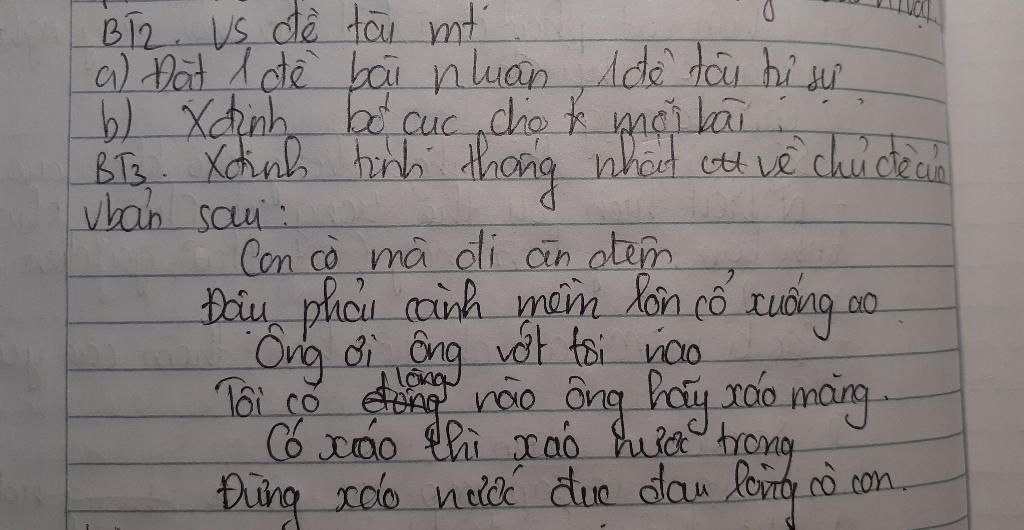 BT2. Vs đề tài mt
a) Đặt 1 đề bài nluận, 1 đề tài tự sự
b) Xđịnh bố cục cho mỗi bài.
BT3. Xđịnh tính thống nhất về chủ đề của
vbản sau:
Con cò mà đi ăn đêm
Đậu phải cành mềm lộn cổ xuống ao
Ông ơi ông vớt tôi nao
Tôi có lòng nào ông hãy xáo măng.
Có xáo thì xáo nước trong
Đừng xáo nước đục đau lòng cò con.